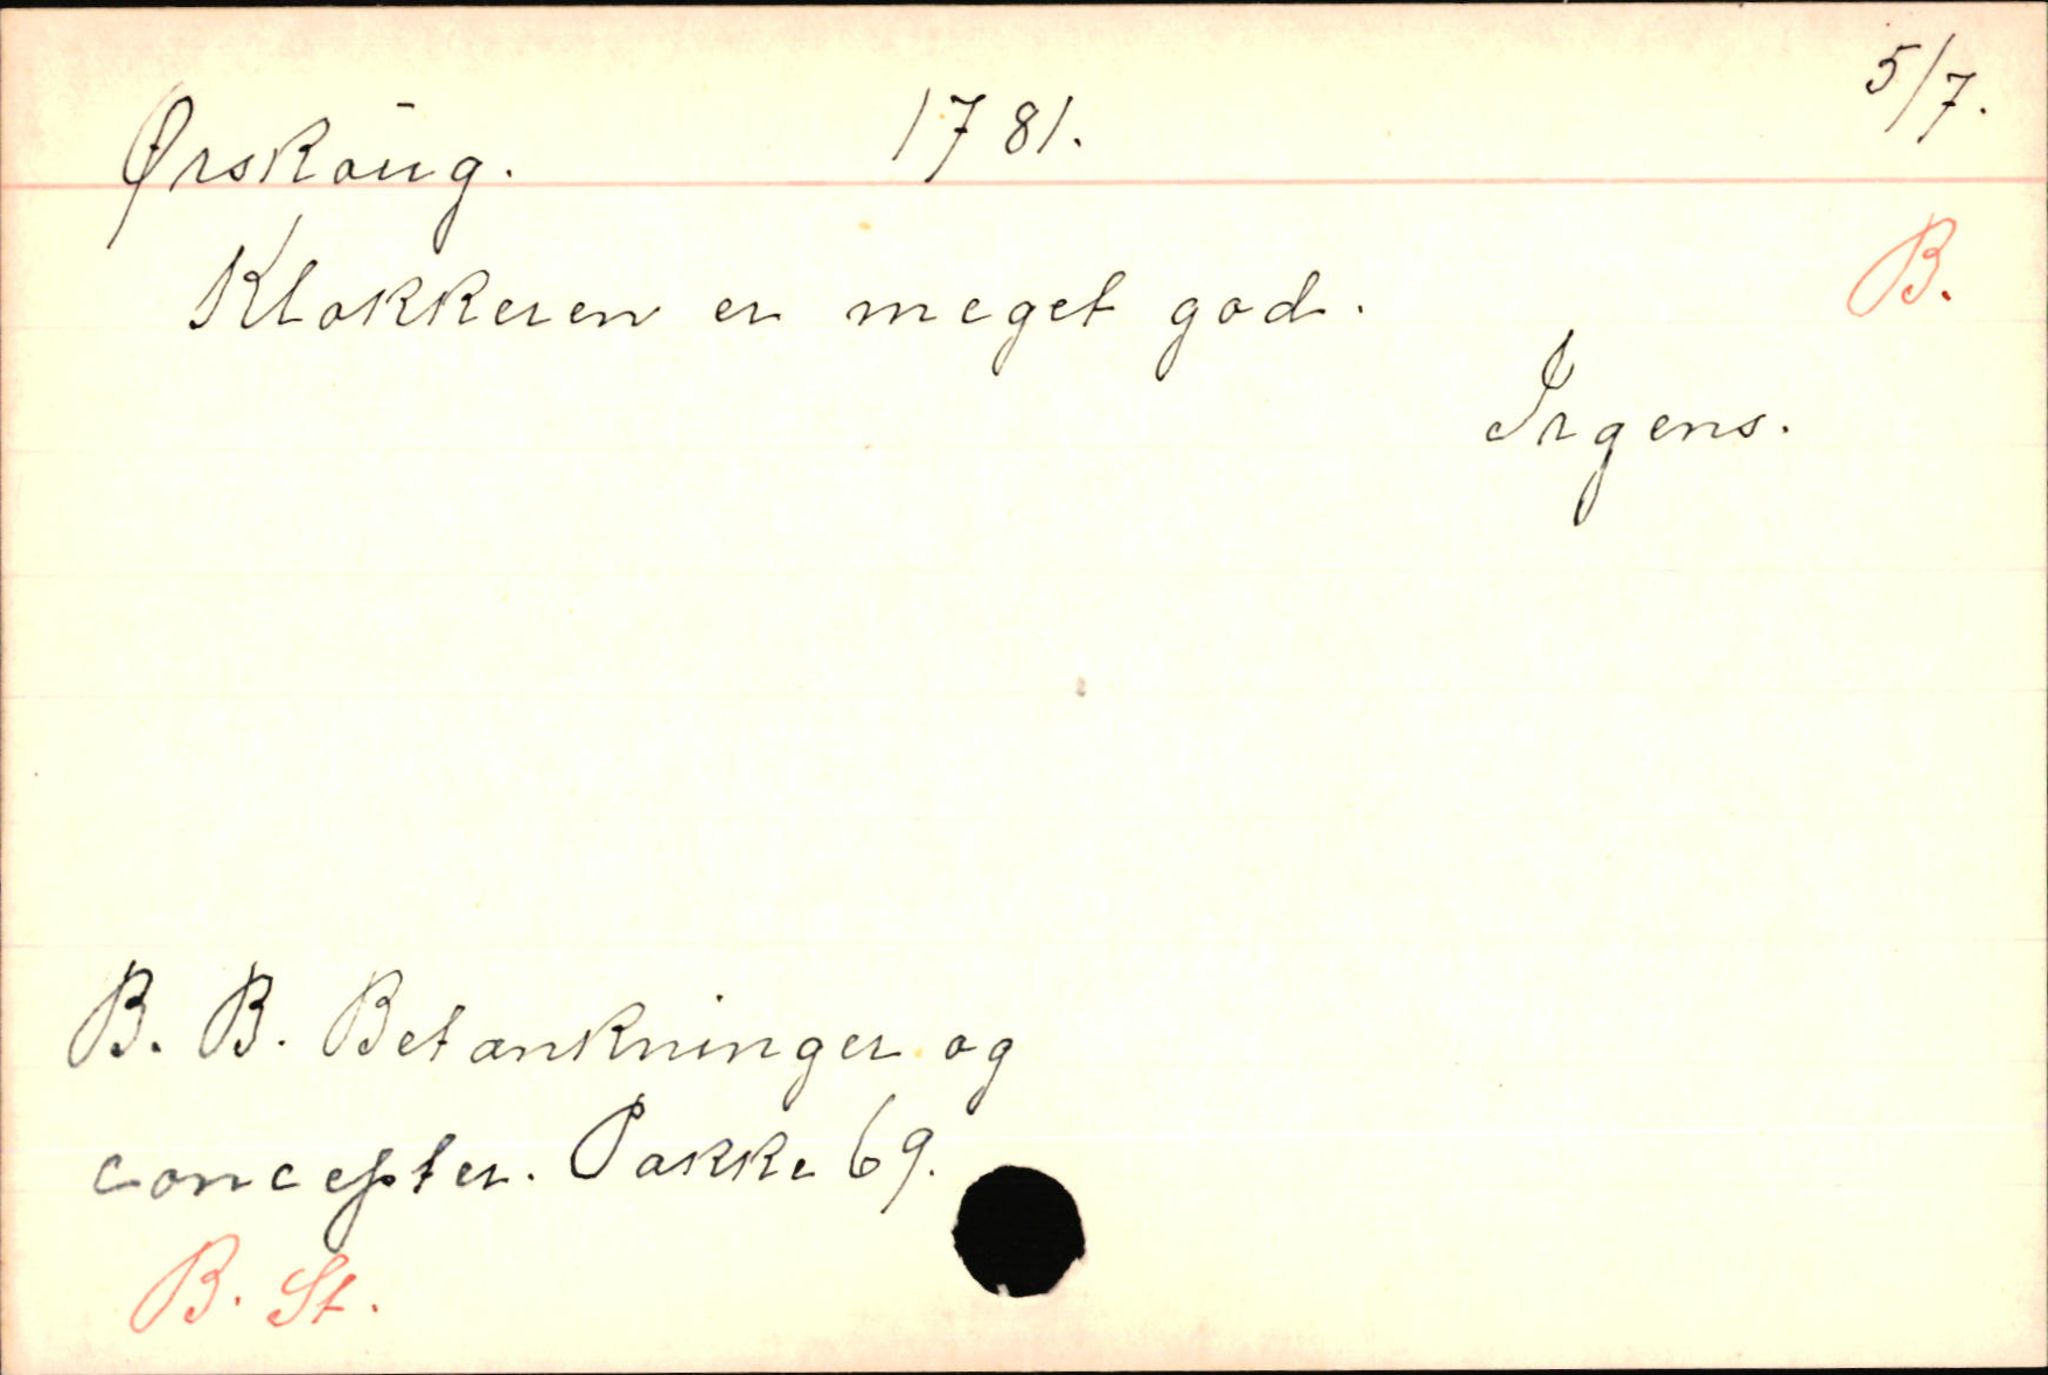 Ørskoūg. 1781. 5/7.
B.
Klokkeren er meget god.
Irgens.
B. B. Betænkninger og
concepter. Pakke 69.
B. St.